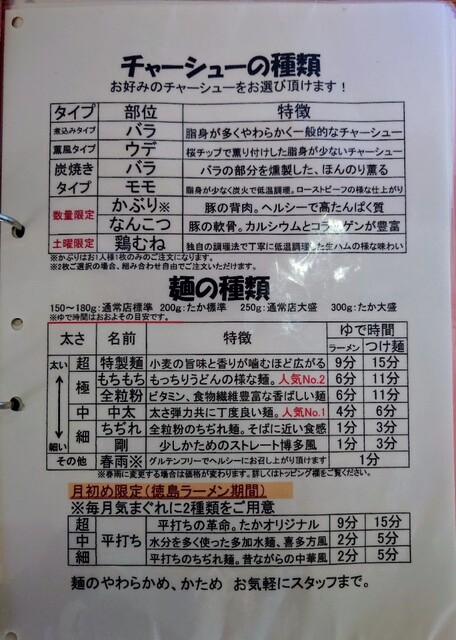 チャーシューの種類
お好みのチャーシューをお選び頂けます！
タイプ 部位 特徴
煮込みタイプ バラ 脂身が多くやわらかく一般的なチャーシュー
薫風タイプ ウデ 桜チップで薫り付けした脂身が少ないチャーシュー
炭焼きタイプ バラ バラの部分を燻製した、ほんのり薫る
モモ 脂身が少なく炭火で低温調理。ローストビーフの様な仕上がり
数量限定 かぶり※ 豚の背肉。ヘルシーで高たんぱく質
なんこつ 豚の軟骨。カルシウムとコラーゲンが豊富
土曜限定 鶏むね 独自の調理法で丁寧に低温調理した生ハムの様な味わい
※かぶりはお1人様1枚のみのご注文になります。
※2枚ご選択の場合、組み合わせ自由でご注文いただけます。
麺の種類
150～180g:通常店標準 200g:たか標準 250g:通常店大盛 300g:たか大盛
※ゆで時間はおおよその目安です。
太さ 名前 特徴 ゆで時間
ラーメン つけ麺
太い 超 特製麺 小麦の旨味と香りが噛むほど広がる 9分 15分
極 もちもち もっちりうどんの様な麺。人気No.2 6分 11分
全粒粉 ビタミン、食物繊維豊富な香ばしい麺 6分 11分
中 中太 太さ弾力共に丁度良い麺。人気No.1 4分 6分
細 ちぢれ 全粒粉のちぢれ麺。そばに近い食感 1分 3分
細い 剛 少しかためのストレート博多風 1分 3分
その他 春雨※ グルテンフリーでヘルシーにお召し上がり頂けます 1分
※春雨に変更する場合は価格が変わります。詳しくはトッピング欄をご覧ください。
月初め限定(徳島ラーメン期間)
※毎月気まぐれに2種類をご用意
超 平打ち 平打ちの革命。たかオリジナル 9分 15分
中 水分を多く使った多加水麺、喜多方風 2分 5分
細 平打ちのちぢれ麺。昔ながらの中華風 2分 5分
麺のやわらかめ、かため お気軽にスタッフまで。